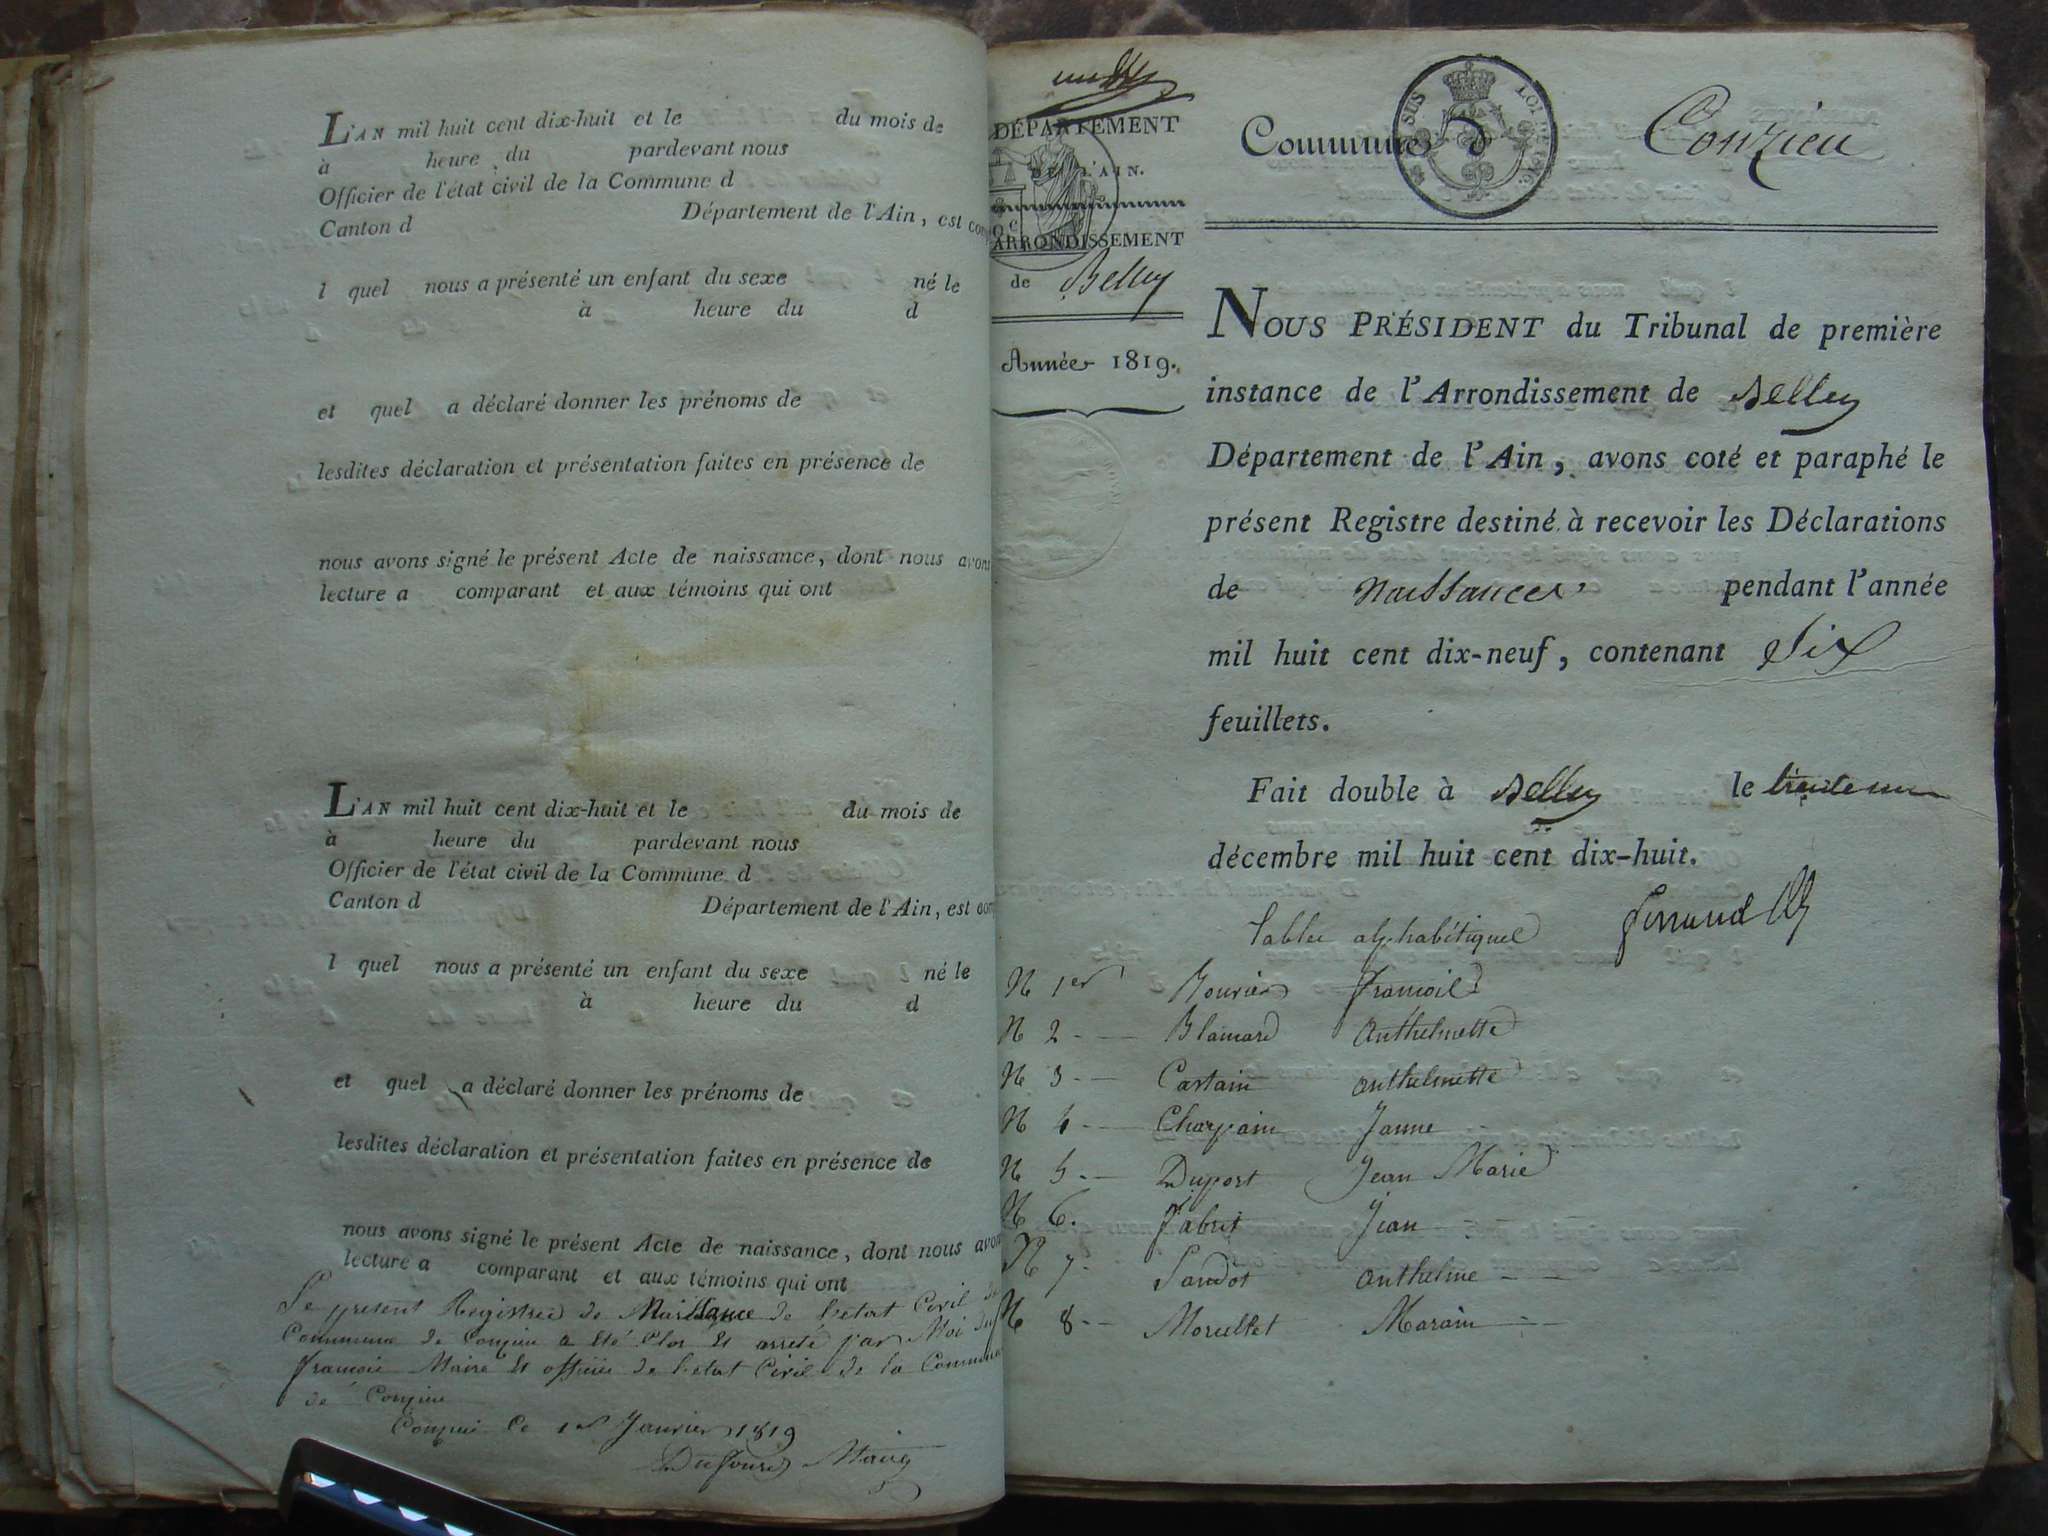 L'AN mil huit cent dix-huit et le du mois de
à heure du pardevant nous
Officier de l'état civil de la Commune d
Canton d Département de l'Ain, est com
l quel nous a présenté un enfant du sexe né le
à heure du d
et quel a déclaré donner les prénoms de
lesdites déclaration et présentation faites en présence de
nous avons signé le présent Acte de naissance, dont nous avons
lecture a comparant et aux témoins qui ont
L'AN mil huit cent dix-huit et le du mois de
à heure du pardevant nous
Officier de l'état civil de la Commune d
Canton d Département de l'Ain, est com
l quel nous a présenté un enfant du sexe né le
à heure du d
et quel a déclaré donner les prénoms de
lesdites déclaration et présentation faites en présence de
nous avons signé le présent Acte de naissance, dont nous avons
lecture a comparant et aux témoins qui ont
Le present Registre de Naissance de l'etat Civil de
Commune de Conzieu a été Clos et arrete par Moi
francois Maire et officier de l'etat Civil de la Commune
de Conzieu
Conzieu Ce 1er Janvier 1819
Maire
DÉPARTEMENT
DE L'AIN.
ARRONDISSEMENT
de Belley
Année 1819.
Commune d Conzieu
NOUS PRÉSIDENT du Tribunal de première
instance de l'Arrondissement de Belley
Département de l'Ain, avons coté et paraphé le
présent Registre destiné à recevoir les Déclarations
de Naissances pendant l'année
mil huit cent dix-neuf, contenant Six
feuillets.
Fait double à Belley le trente un
décembre mil huit cent dix-huit.
Tables alphabétiques
N 1er francois
N 2 - Anthelmette
N 3 - Anthelmette
N 4 - Janne
N 5 - Duport Jean Marie
N 6. Jean
N 7 - Anthelme
N 8 -